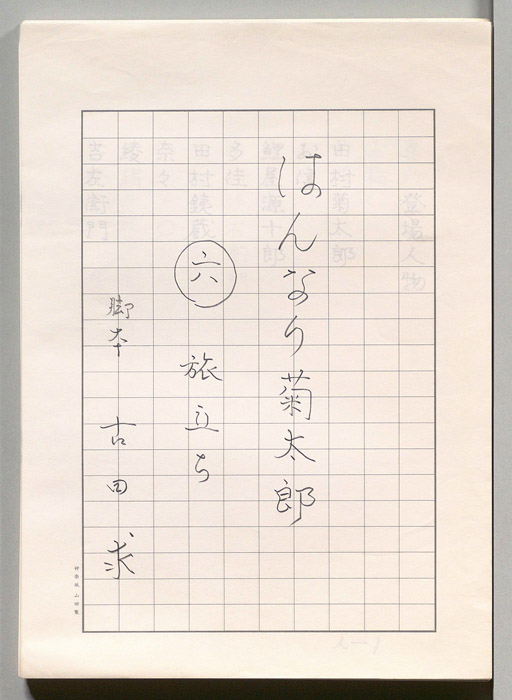 はんなり菊太郎
六 旅立ち
脚本 古田求
登場人物
田村菊太郎
お信
鯉屋源十郎
多佳
田村銕蔵
奈々
綾
吉左衛門